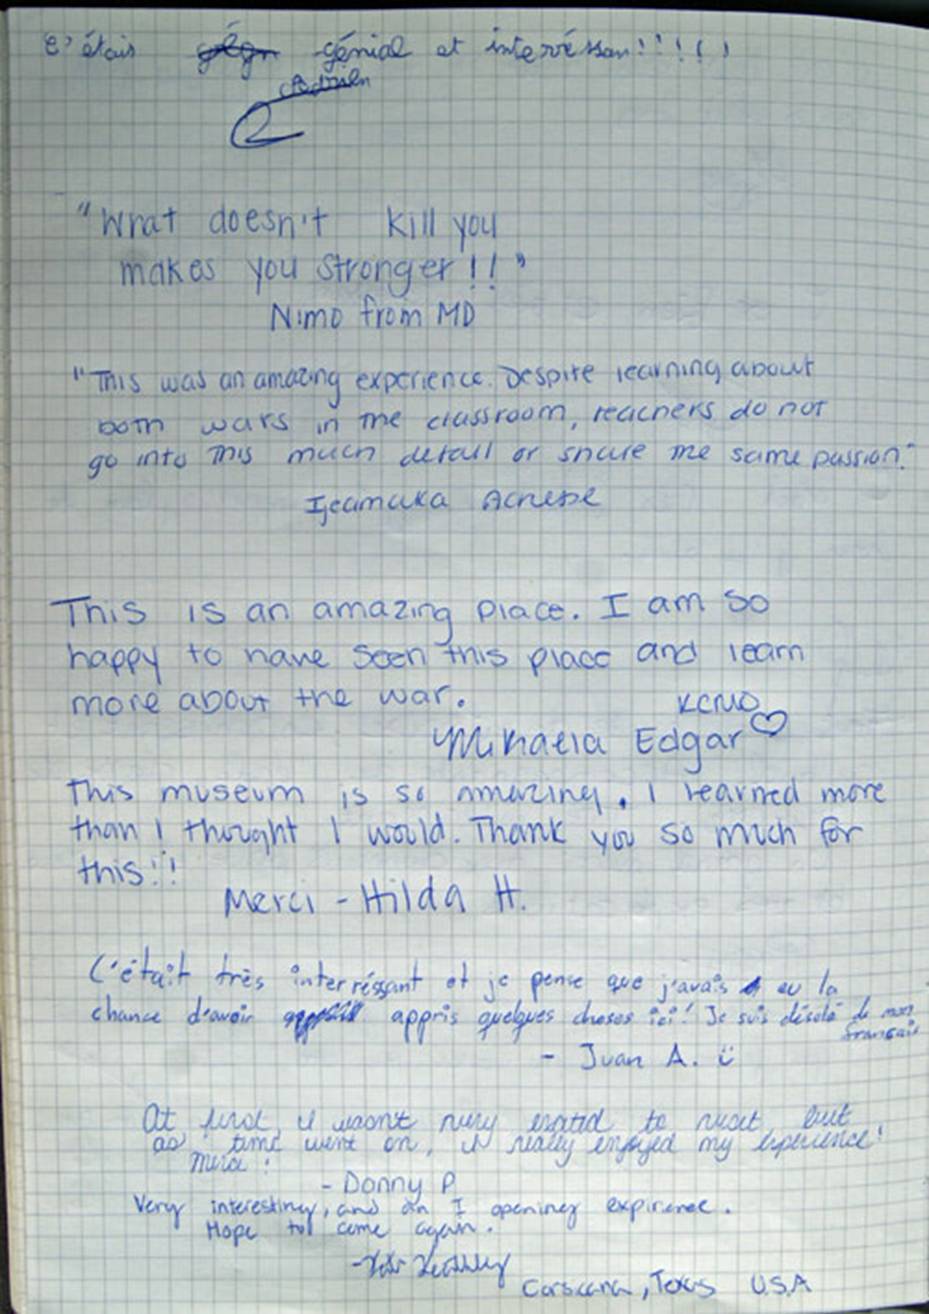 C'étais génial et interréssan!!!!()
Adrien
"What doesn't kill you
makes you stronger!!"
Nimo from MD
"This was an amazing experience. Despite learning about
both wars in the classroom, teachers do not
go into this much detail or share the same passion."
This is an amazing place. I am so
happy to have seen this place and learn
more about the war.
KCMO
Mikaela Edgar ♡
This museum is so amazing. I learned more
than I thought I would. Thank you so much for
this!!
Merci - Hilda H.
C'était très interréssant et je pense que j'avais eu la
chance d'avoir appris quelques choses ici! Je suis désolé de mon
français
- Juan A. ü
At first, I wasn't very excited to visit but
as time went on, I really enjoyed my experience!
Merci!
- Donny P.
Very interesting, and an I opening expirence.
Hope to come again.
Corsicana, Texas U.S.A